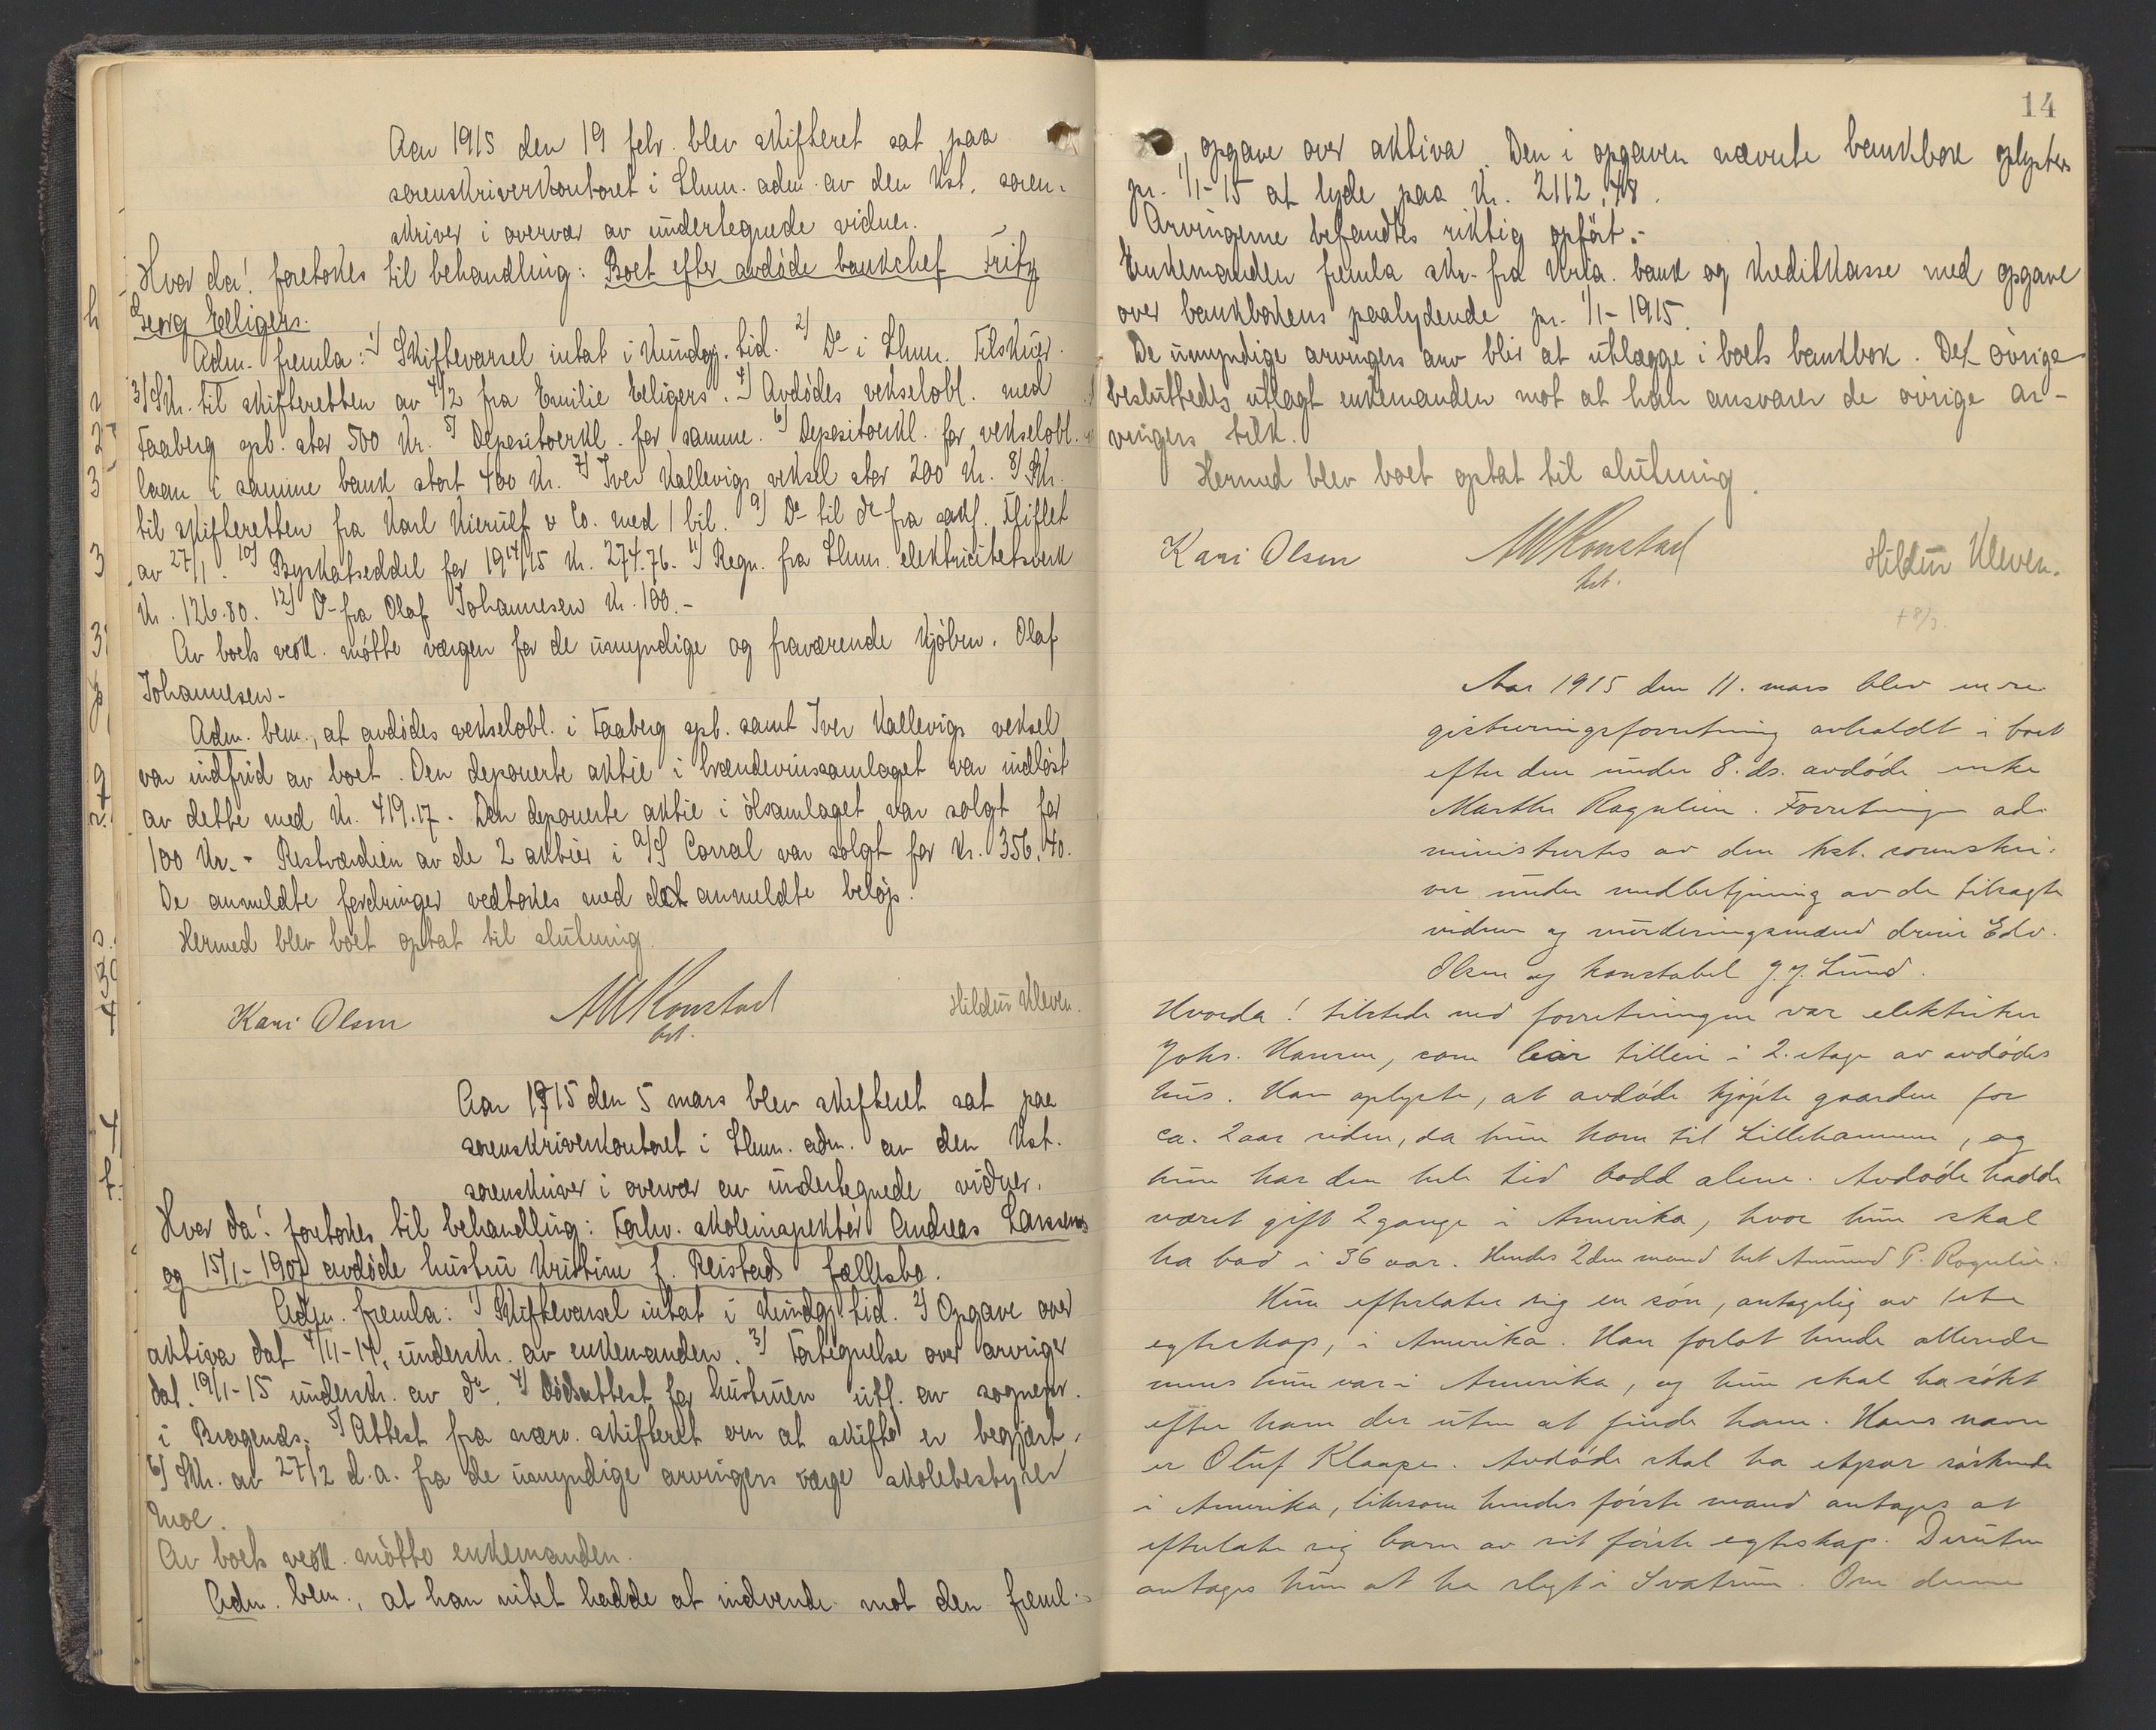 Aar 1915 den 19 febr. blev skifteret sat paa
sorenskriverkontoret i Lhmr. adm. av den kst. soren-
skriver i overvær av undertegnede vidner.
Hvor da! foretokes til behandling: Boet efter avdøde bankchef Fritz
Georg Elligers.
Adm. fremla: 1) Skiftevarsel intat i Kundgj. tid. 2) Do i Lhmr. Tilskuer.
3) Skr. til skifteretten av 4/2 fra Emilie Elligers. 4) Avdødes vekselobl. med
Faaberg spb. stor 500 kr. 5) Depositoerkl. for samme. 6) Depositoerkl. for vekselobl.
laan i samme bank stort 400 kr. 7) Iver Kallevigs veksel stor 200 kr. 8) Skr.
til skifteretten fra Karl Kierulf & Co. med 1 bil. 9) Do til do fra sakf. Fliflet
av 27/1. 10) Byskatseddel for 1914/15 kr. 274.76. 11) Regn. fra Lhmr. elektricitetsverk
kr. 126.80. 12) Do fra Olaf Johannesen kr. 100.-
Av boets vedk. møtte vergen for de umyndige og fraværende kjøbm. Olaf
Johannesen.
Adm. bem., at avdødes vekselobl. i Faaberg spb. samt Iver Kallevigs veksel
var indfrid av boet. Den deponerte aktie i brændevinssamlaget var indløst
av dette med kr. 419.17. Den deponerte aktie i ølsamlaget var solgt for
100 kr. - Restværdien av de 2 aktier i A/S Corral var solgt for kr. 356.40.
De anmeldte fordringer vedtokes med det anmeldte beløp.
Hermed blev boet optat til slutning.
Kari Olsen AW Konstad Hildur Kleven.
kst.
Aar 1915 den 5 mars blev skifteret sat paa
sorenskriverkontoret i Lhmr. adm. av den kst.
sorenskriver i overvær av undertegnede vidner.
Hvor da! foretokes til behandling: Forhv. skoleinspektør Andreas Larssens
og 15/1-1907 avdøde hustru Kristine f. Reistads fællesbo.
Adm. fremla: 1) Skiftevarsel intat i Kundgj. tid. 2) Opgave over
aktiva dat 4/11-14, underskr. av enkemanden. 3) Fortegnelse over arvinger
dat. 19/1-15 underskr. av do. 4) Dødsattest for hustruen utf. av sognepr.
i Bragenæs. 5) Attest fra nærv. skifteret om at skifte er begjært.
6) Skr. av 27/2 d.a. fra de umyndige arvingers verge skolebestyrer
Moe.
Av boets vedk. møtte enkemanden.
Adm. bem., at han intet hadde at indvende mot den freml.
14
opgave over aktiva. Den i opgaven nævnte bankbok oplystes
pr. 1/1-15 at lyde paa kr. 2112.48.
Arvingerne befandtes riktig opført.-
Enkemanden fremla skr. fra Kria. bank og Kreditkasse med opgave
over bankbokens paalydende pr. 1/1-1915.
De umyndige arvingers arv blir at utlægge i boets bankbok. Det øvrige
besluttedes utlagt enkemanden mot at han ansvarer de øvrige ar-
vingers tilk.
Hermed blev boet optat til slutning.
Kari Olsen AW Konstad Hildur Kleven.
kst.
+ 8/3.
Aar 1915 den 11. mars blev en re-
gistreringsforretning avholdt i boet
efter den under 8. ds. avdøde enke
Marthe Rogulien. Forretningen ad-
ministrertes av den kst. sorenskri-
ver under medbetjening av de tilsagte
vidner og vurderingsmænd Edv.
Olsen og konstabel Lund.
Hvorda! tilstede ved forretningen var elektriker
Johs. Hansen, som leiar tilleie i 2. etage av avdødes
hus. Han oplyste, at avdøde kjøpte gaarden for
ca. 2 aar siden, da hun kom til Lillehammer, og
hun har den hele tid bodd alene. Avdøde hadde
været gift 2 gange i Amerika, hvor hun skal
ha bod i 36 aar. Hendes 2den mand het Amund P. Rogulien.
Hun efterlater sig en søn, antagelig av 1ste
egteskap, i Amerika. Han forlot hende allerede
mens hun var i Amerika, og hun skal ha søkt
efter ham der uten at finde ham. Hans navn
er Oluf Klaape. Avdøde skal ha et par søskende
i Amerika, likesom hendes første mand antages at
efterlate sig barn av sit første egteskap. Desuten
antages hun at ha slegt i Svatsum. Om denne